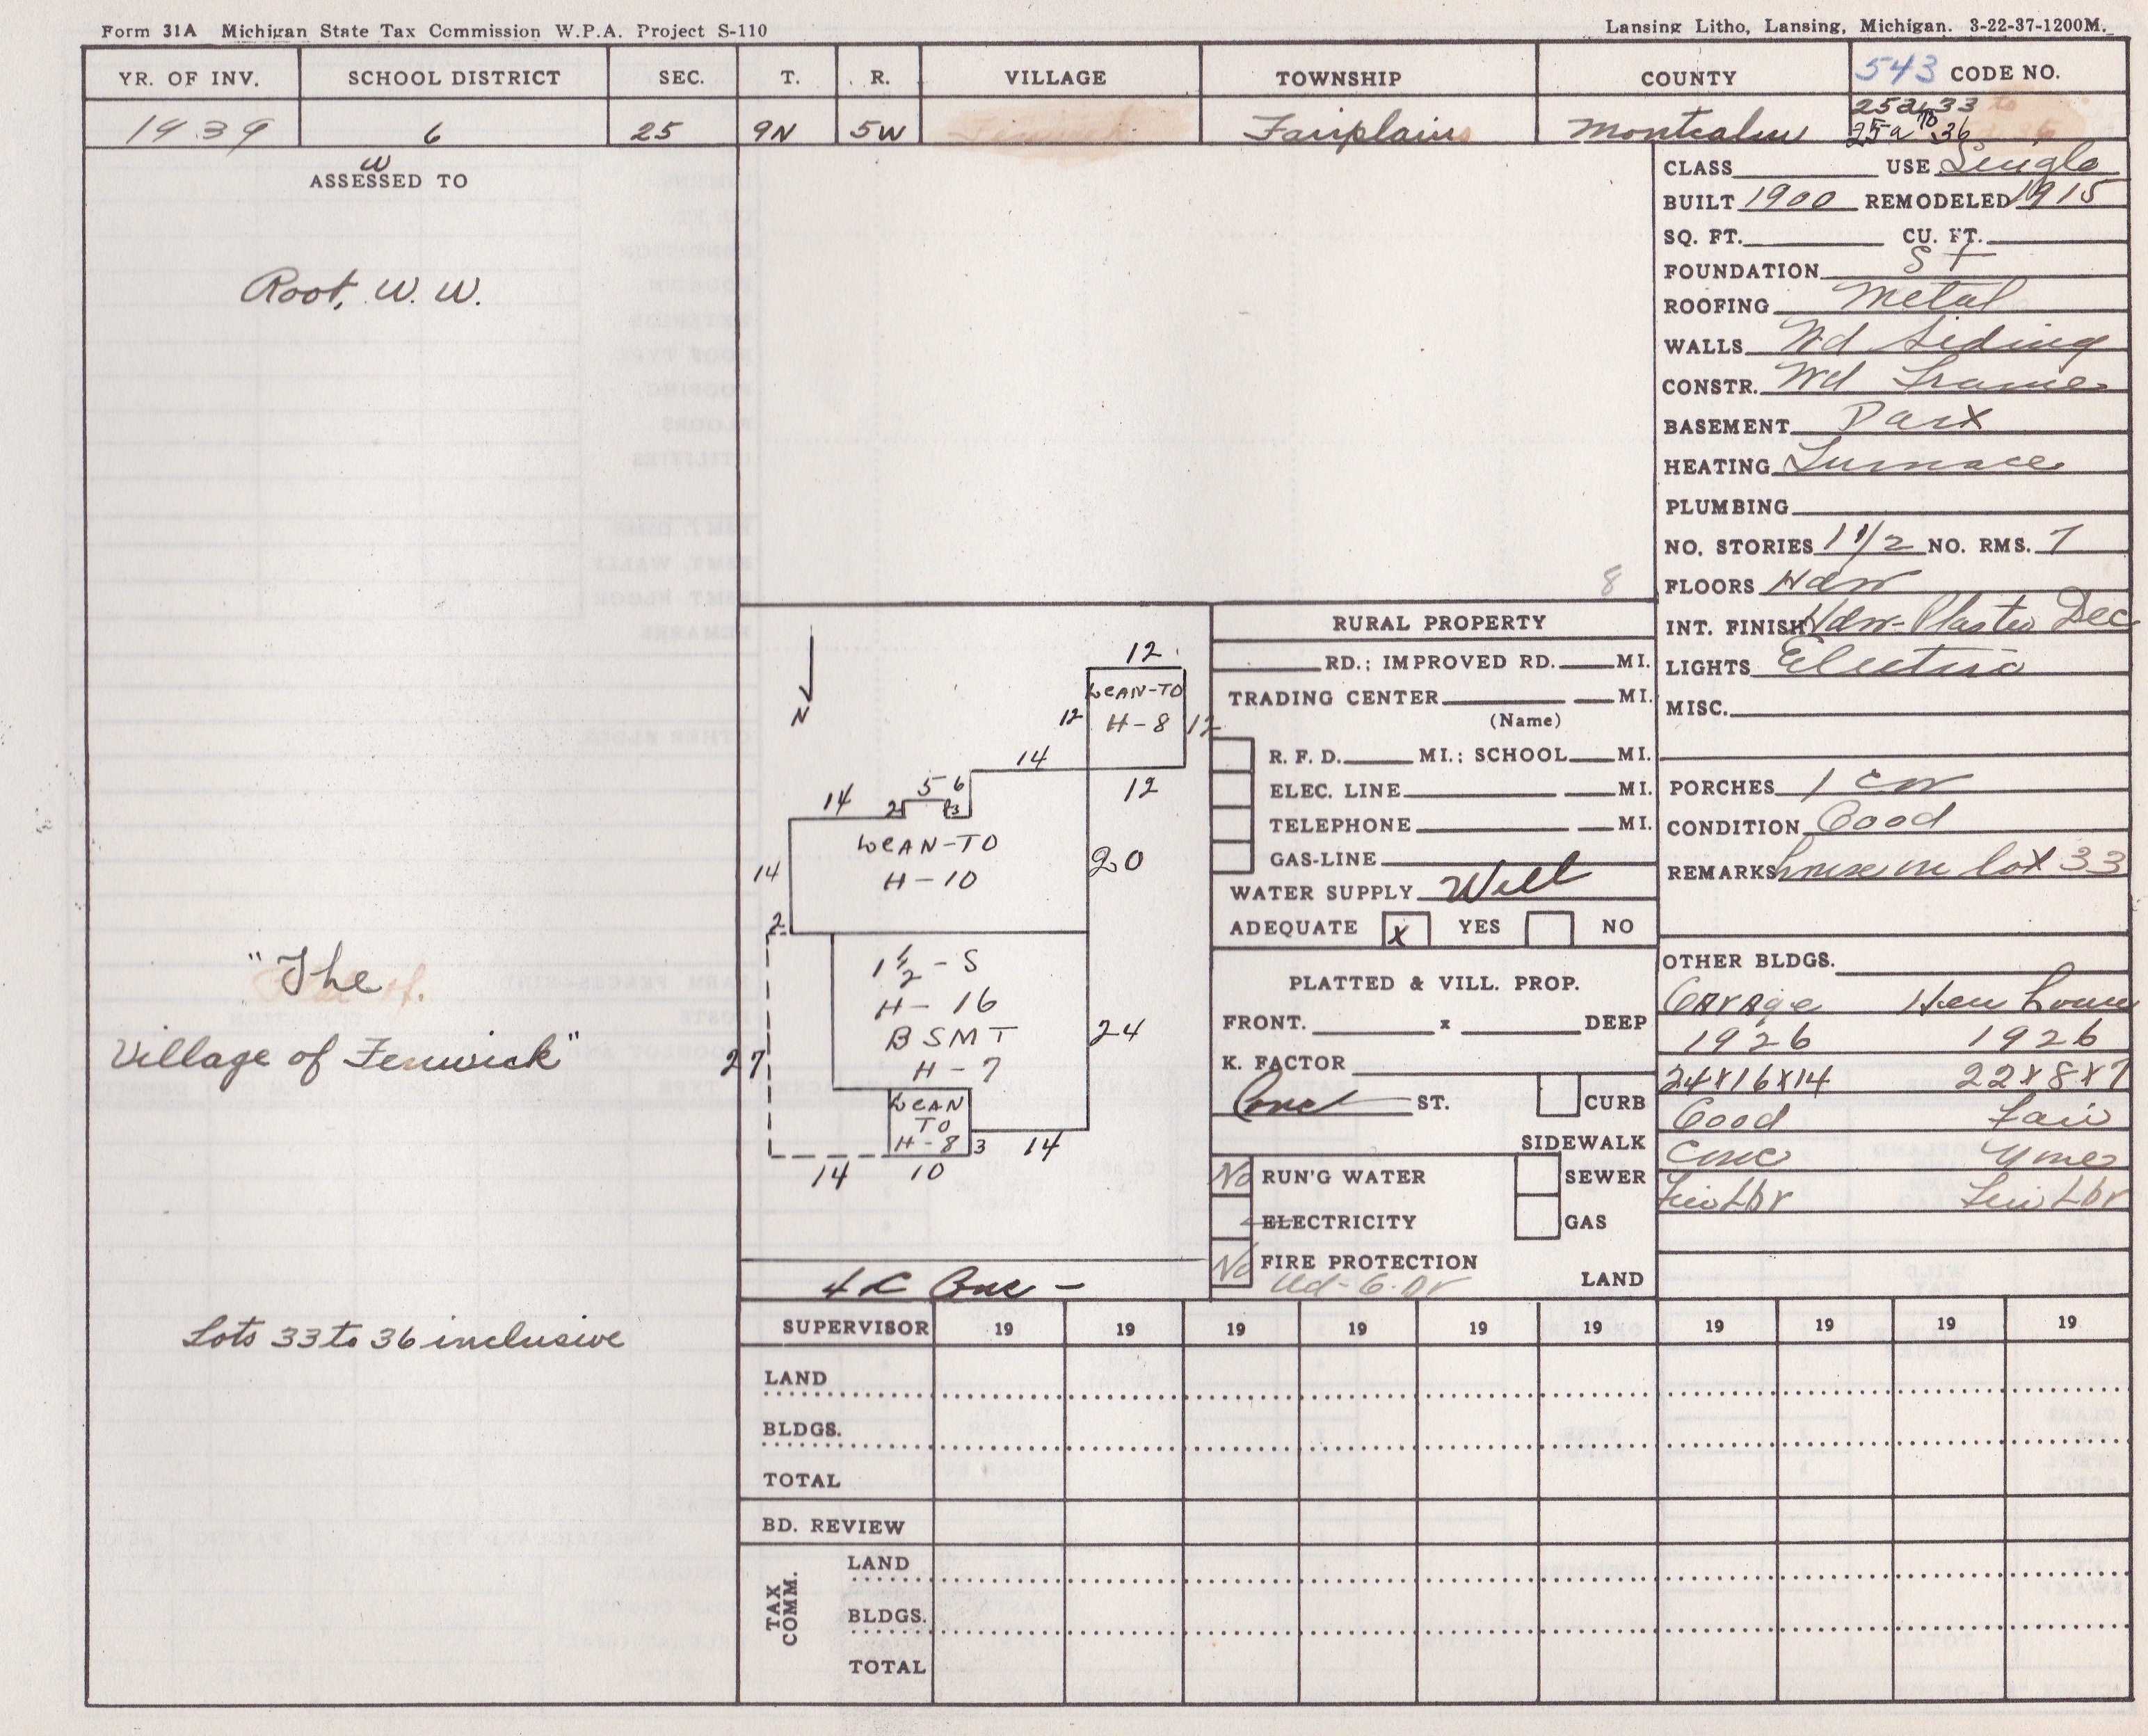 Form 31A Michigan State Tax Commission W.P.A. Project S-110
Lansing Litho, Lansing, Michigan. 3-22-37-1200M.
YR. OF INV. SCHOOL DISTRICT SEC. T. R. VILLAGE TOWNSHIP COUNTY 543 CODE NO.
1939 6 25 9N 5W Fenwick Fairplains Montcalm 25a 33
25a TO 36
W
ASSESSED TO
Root, W. W.
"The
Village of Fenwick"
Lots 33 to 36 inclusive
CLASS USE Single
BUILT 1900 REMODELED 1915
SQ. FT. CU. FT.
FOUNDATION St
ROOFING Metal
WALLS Wd Siding
CONSTR. Wd Frame
BASEMENT Part
HEATING Furnace
PLUMBING
NO. STORIES 1 1/2 NO. RMS. 7
FLOORS Hdw
INT. FINISH Hdw-Plaster Dec
LIGHTS Electric
MISC.
PORCHES 1 CW
CONDITION Good
REMARKS house on lot 33
OTHER BLDGS.
Garage Hen house
1926 1926
24x16x14 22x8x7
Good Fair
Conc None
8
N
12
LEAN-TO
12 H-8 12
14
12
5 6
14 2 3
LEAN-TO
H-10
14
20
2
1 1/2-S
H-16
BSMT
H-7
24
27
LEAN
TO
H-8
3 14
14 10
4 C Conc -
RURAL PROPERTY
RD.; IMPROVED RD. MI.
TRADING CENTER MI.
(Name)
R. F. D. MI.; SCHOOL MI.
ELEC. LINE MI.
TELEPHONE MI.
GAS-LINE
WATER SUPPLY Well
ADEQUATE X YES NO
PLATTED & VILL. PROP.
FRONT. x DEEP
K. FACTOR
Conc ST. CURB
SIDEWALK
No RUN'G WATER SEWER
ELECTRICITY GAS
No FIRE PROTECTION
LAND
SUPERVISOR 19 19 19 19 19 19 19 19 19 19
LAND
BLDGS.
TOTAL
BD. REVIEW
TAX COMM.
LAND
BLDGS.
TOTAL